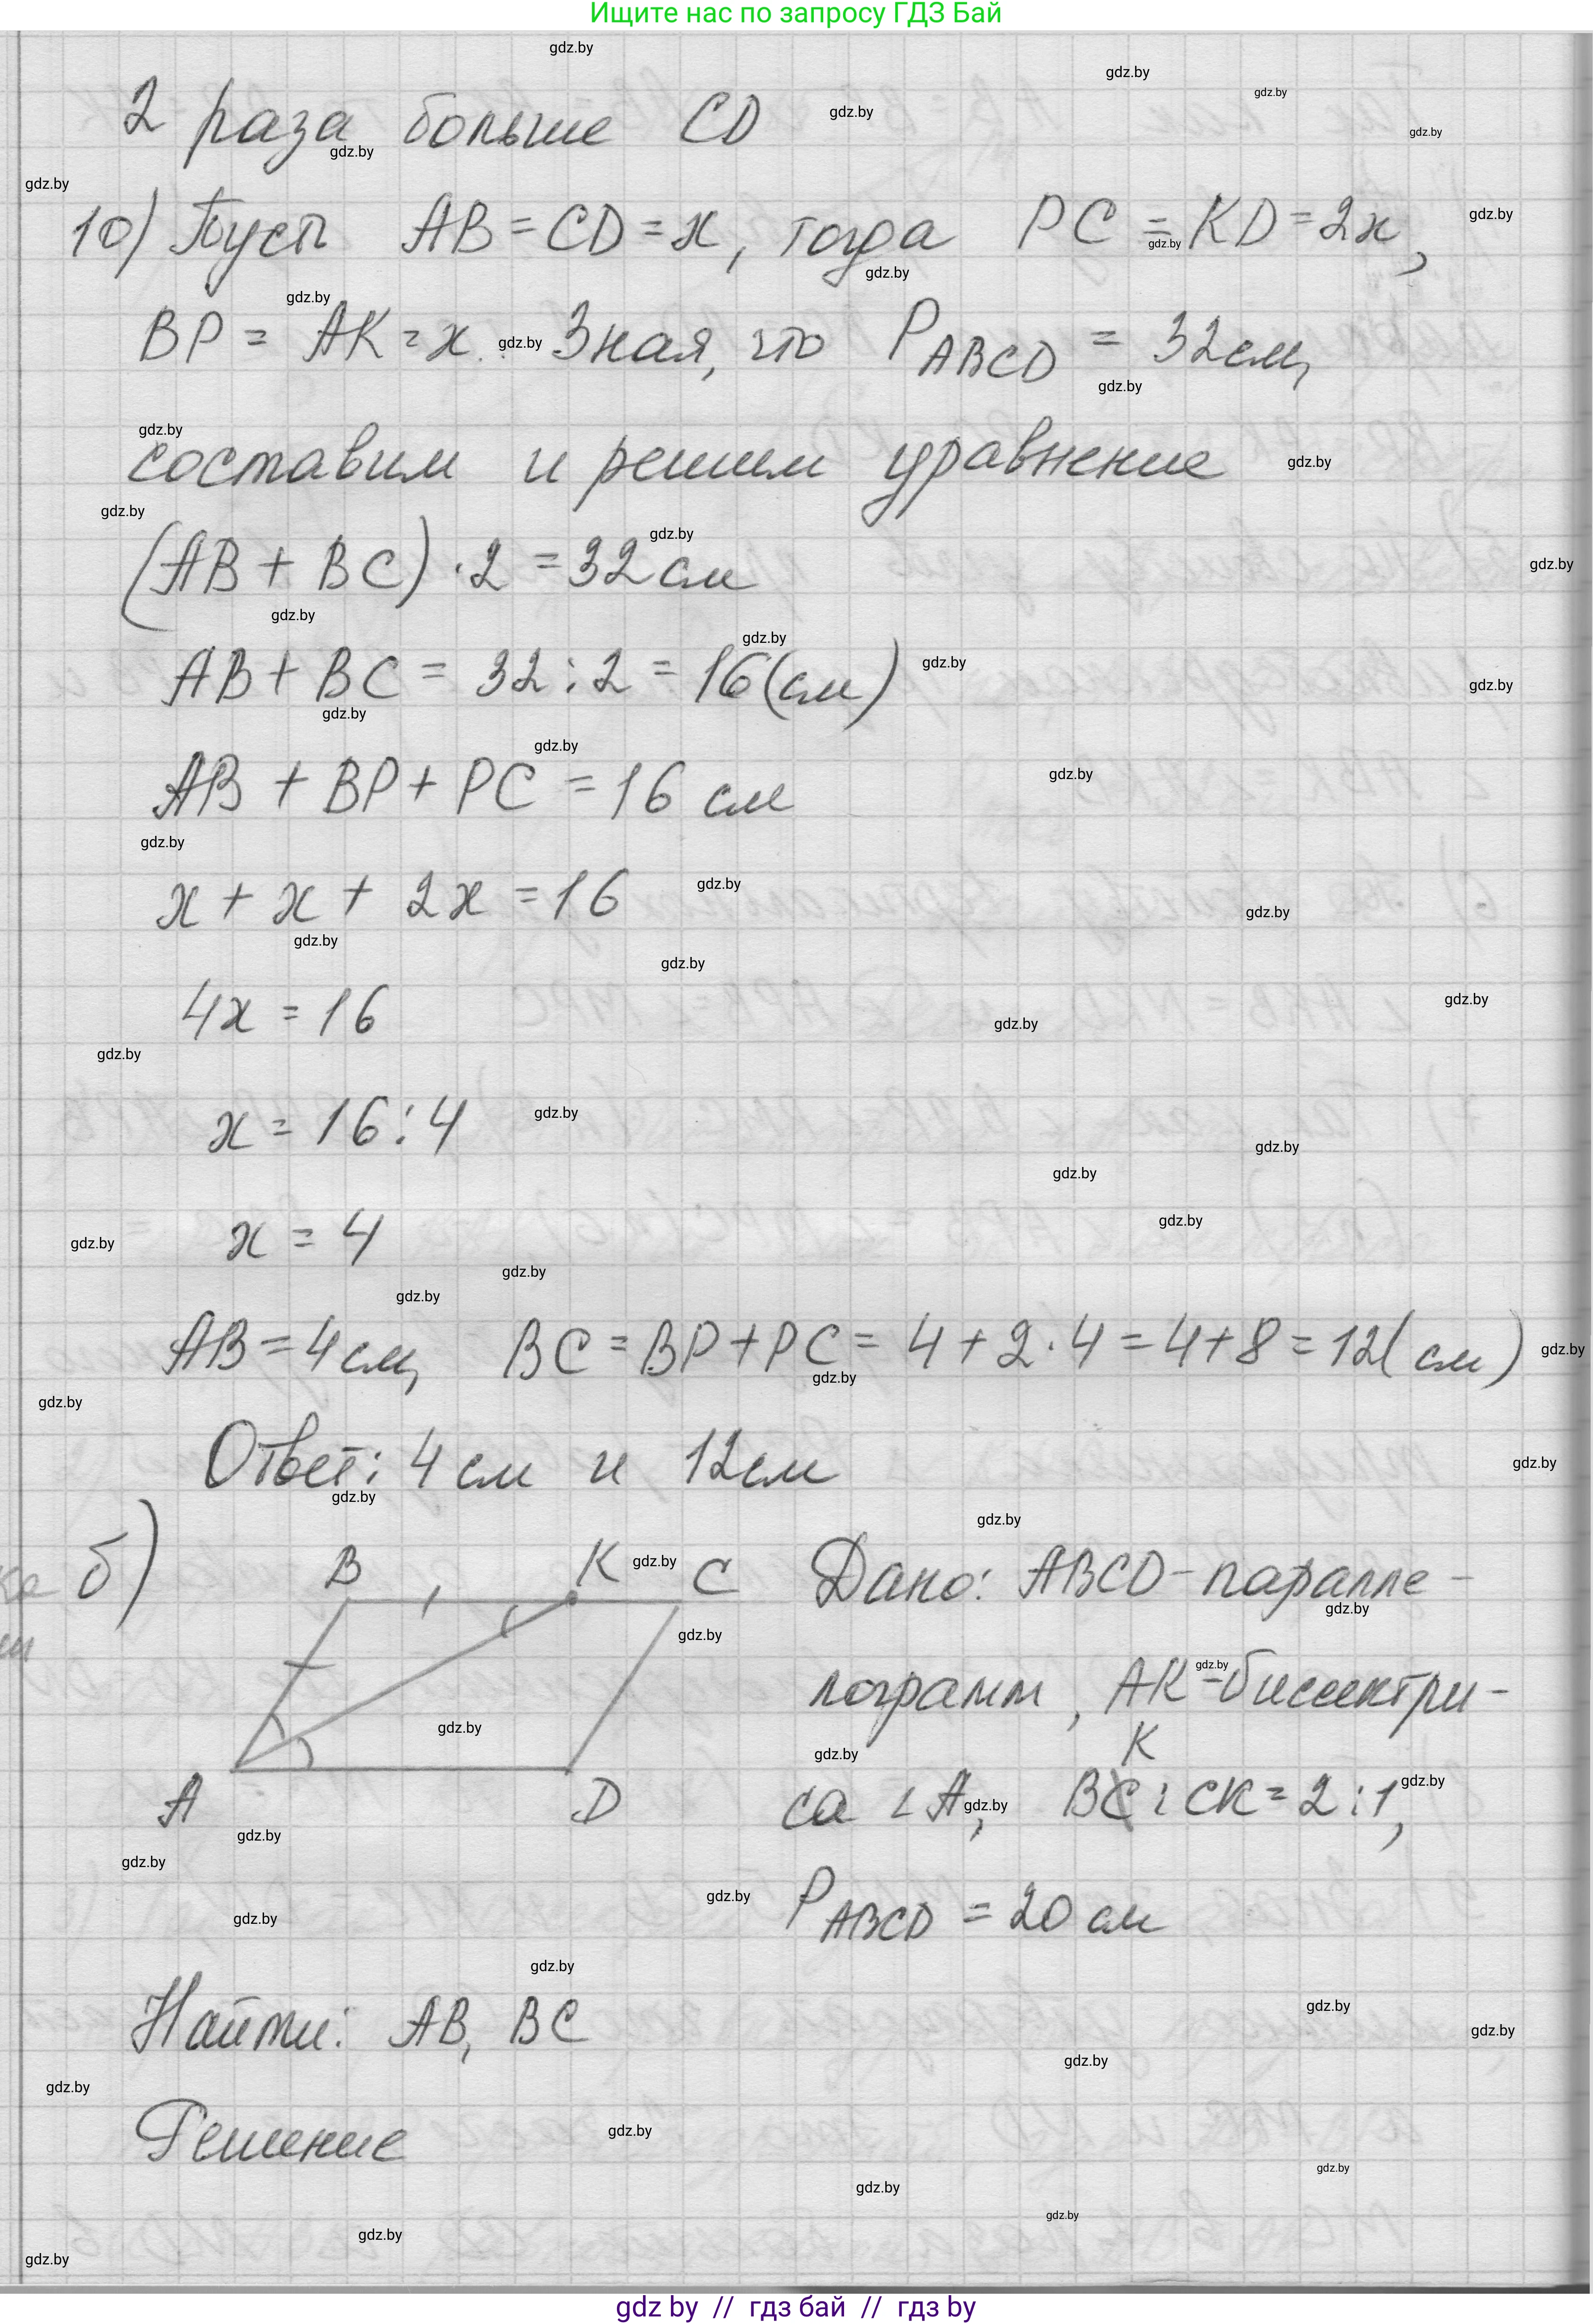 Ищите нас по запросу ГДЗ Бай
2 раза больше CD
10) Пусть AB = CD = x, тогда PC = KD = 2x,
BP = AK = x. Зная, что P ABCD = 32см,
составим и решим уравнение
(AB + BC) · 2 = 32 см
AB + BC = 32 : 2 = 16 (см)
AB + BP + PC = 16 см
x + x + 2x = 16
4x = 16
x = 16 : 4
x = 4
AB = 4 см, BC = BP + PC = 4 + 2 · 4 = 4 + 8 = 12 (см)
Ответ: 4 см и 12 см
б) B K C
A D
Дано: ABCD - паралле-
лограмм, AK - биссектри-
са ∠A, BK : CK = 2 : 1,
P ABCD = 20 см
Найти: AB, BC
Решение
gdz by // гдз бай // гдз by